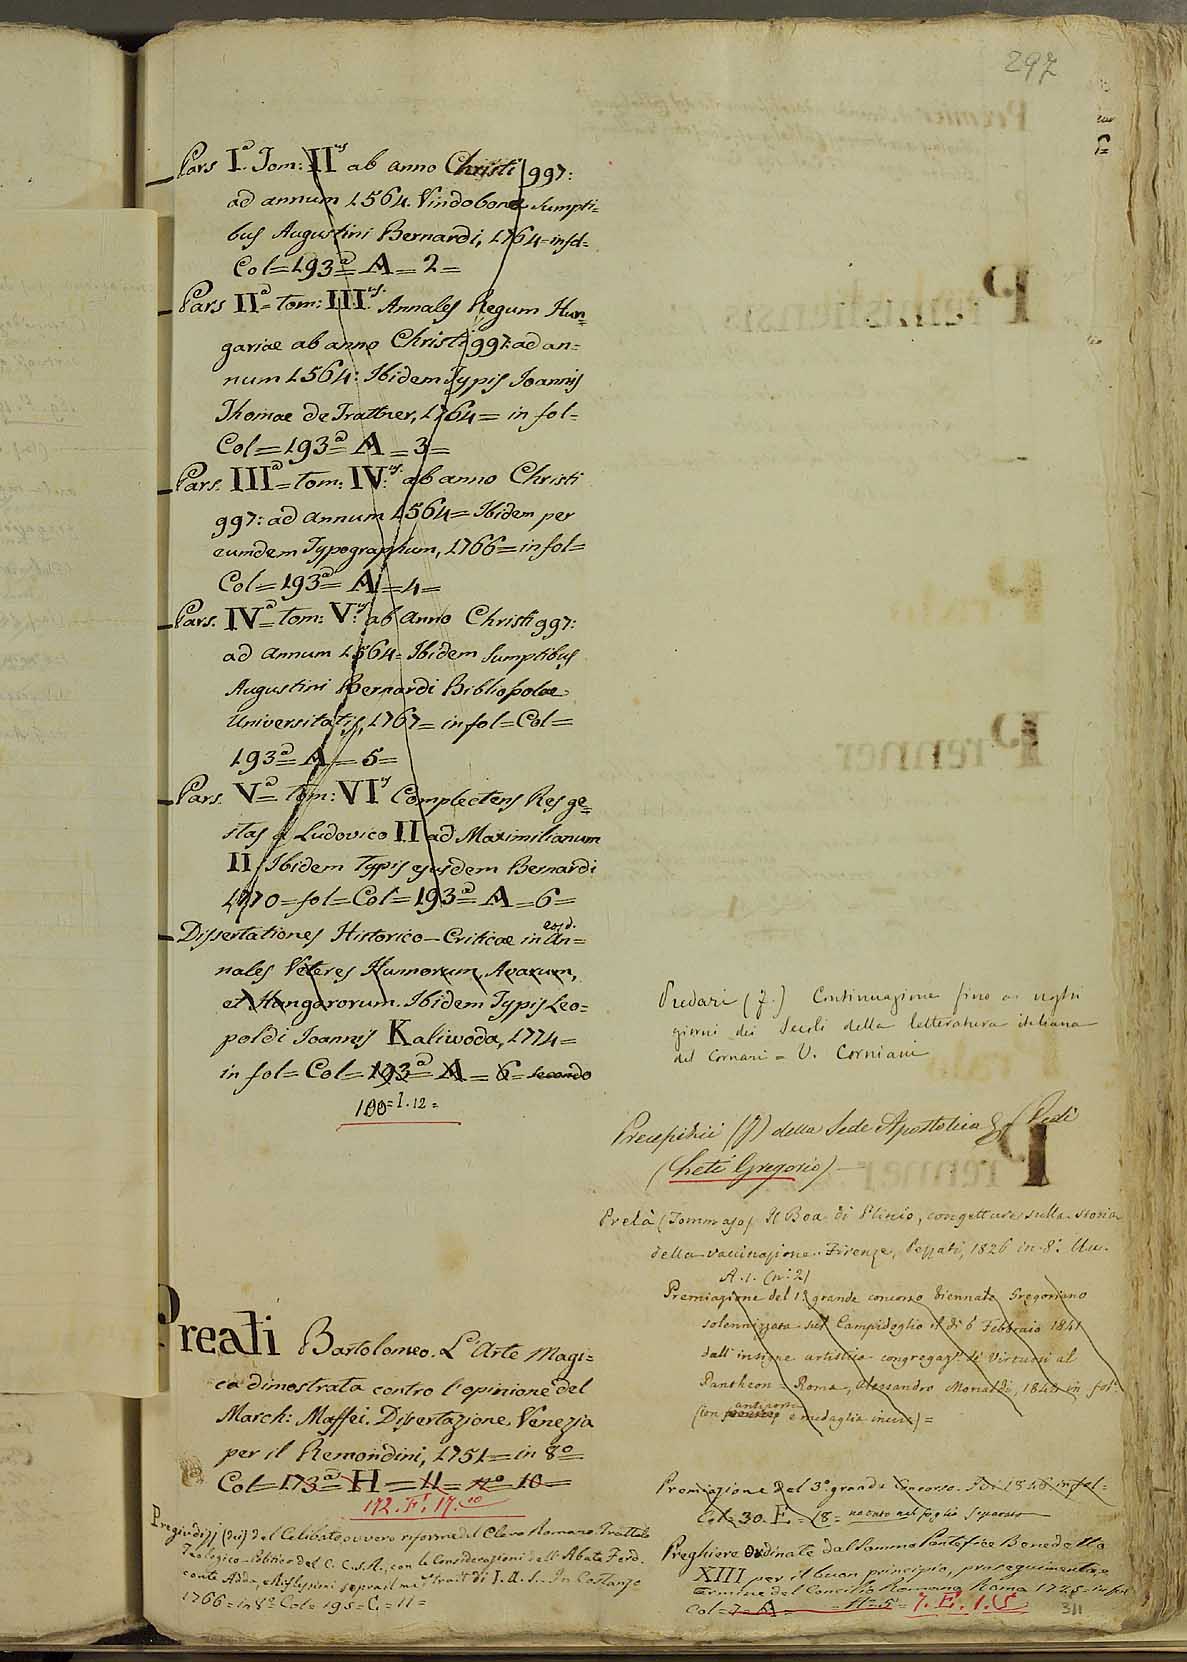 297
Pars I.ª Tom: II.us ab anno Christi 997:
ad annum 1564. Vindobonæ Sumpti=
bus Augustini Bernardi, 1764=in fol=
Col=193ª= A=2=
Pars II.ª= tom: III.us Annales Regum Hun=
gariae ab anno Christi 997: ad an=
num 1564: Ibidem Typis Joannis
Thomae De Trattner, 1764= in fol=
Col=193ª= A=3=
Pars. III.ª=tom: IV.us ab anno Christi
997: ad annum 1564= Ibidem per
eumdem Typographum, 1766=in fol=
Col=193ª= A=4=
Pars. IV.ª=tom: V.us ab anno Christi 997:
ad annum 1564= Ibidem Sumptibus
Augustini Bernardi Bibliopolae
Universitatis, 1767=in fol=Col=
193ª= A=5=
Pars. V.ª= tom: VI.us Complectens Res ge=
stas a Ludovico II ad Maximilianum
II Ibidem Typis ejusdem Bernardi
1770=fol=Col=193ª= A=6=
Dissertationes Historico-Criticae in eosd. An=
nales Veteres Hunnorum, Avarum,
et Hungarorum. Ibidem Typis Leo=
poldi Joannis Kaliwoda, 1774=
in fol=Col=193ª= A=6= secondo
100=I.12=
Preati Bartolomeo. L'Arte Magi=
ca dimostrata contro l'opinione del
March: Maffei. Dissertazione. Venezia
per il Remondini, 1751=in 8º=
Col=173ª= H=11=nº 10=
172. F. 17.10
Pregiudizj (Dei) del Celibato, ovvero riforma del Clero Romano. Trattato
Teologico-Politico del C. C. S. A., con le Considerazioni dell'Abate Ferd.
conte Adda, sopra il trait di I. A. S. In Costanza
1766=in 8º=Col=195=C.=11=
Predari (F.) Continuazione fino a' nostri
giorni dei Secoli della letteratura italiana
del Corniani = V. Corniani
Precipizii (I) della Sede Apostolica &c. (Vedi
(Leti Gregorio).—
Prelà (Tommaso). Il Boa di Plinio, congetture sulla storia
della vaccinazione. Firenze, Pezzati, 1826 in 8º. Mis.
A.1. (nº.2)
Premiazione del 1º grande concorso biennale Gregoriano
solennizzata sul Campidoglio il dì 6 Febbraio 1841
dall'insigne artistica congregazº. di Virtuosi al
Pantheon = Roma, Alessandro Monaldi, 1841 in fol.
(con antiporta e medaglia incisa)=
Premiazione del 3º grande Concorso. Ivi 1846 in fol=
Col=30. E=18= notato nel foglio Separato
Preghiere Ordinate dal Sommo Pontefice Benedetto
XIII per il buon principio, proseguimento, e
termine del Concilio Romano Roma 1725=in fol
Col=7=A= =11=5= 7. E. 1. 5
311